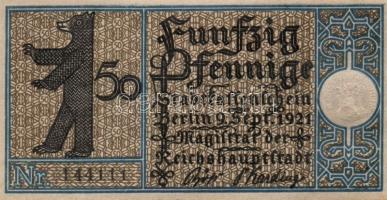 Funfzig
50 Pfennige
Stadtkassenschein
Berlin 9. Sept. 1921
Magistrat der
Reichshauptstadt
Nr. 144111